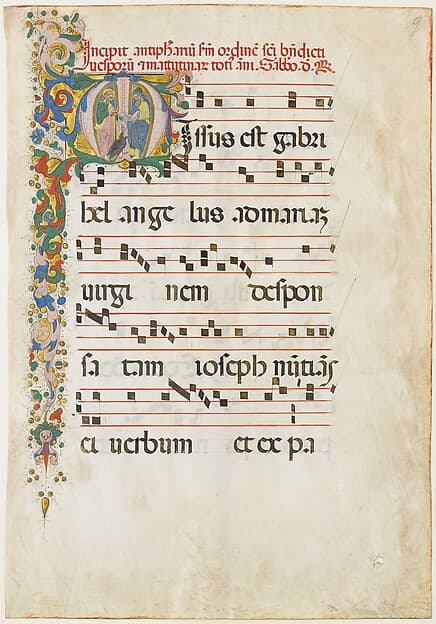 Incipit antiphanũ scďm ordinẽ sci bñdicti
uesporũ & matutinar toti ãni. Sabbo. d. R.
Missus est gabri
hel ange lus ad mariaȝ
uirgi nem despon
sa tam ioseph nũtiãs
ei uerbum et ex pa